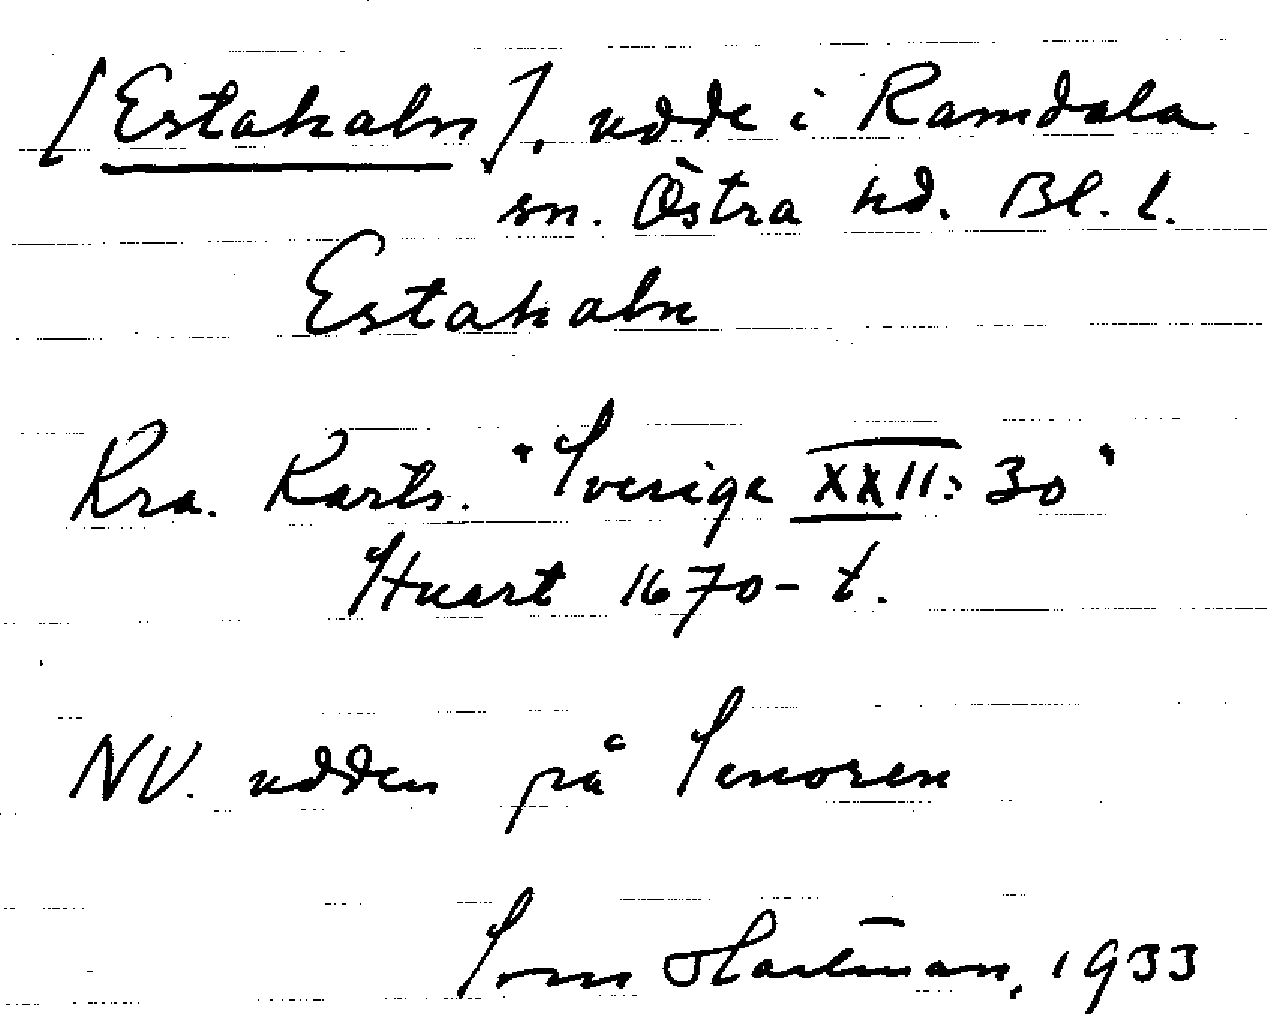 [Estahaln], udde i Ramdala
sn. Östra hd. Bl. l.
Estahaln
Kra. Karts. "Sverige XXII: 30"
Huart 1670-t.
NV. udden på Senoren
Sven Hartman, 1933